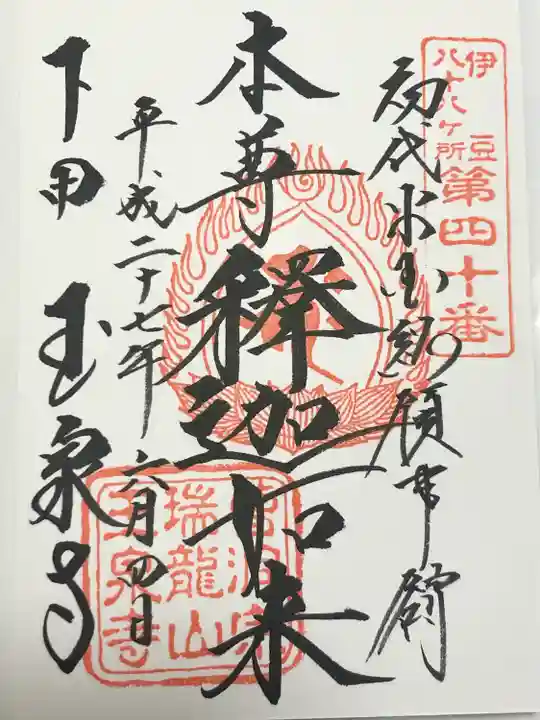 伊豆
八十八ケ所
第四十番
初代米国総領事館
本尊釋迦如来
平成二十七年六月四日
瑞龍山
玉泉寺
下田 玉泉寺